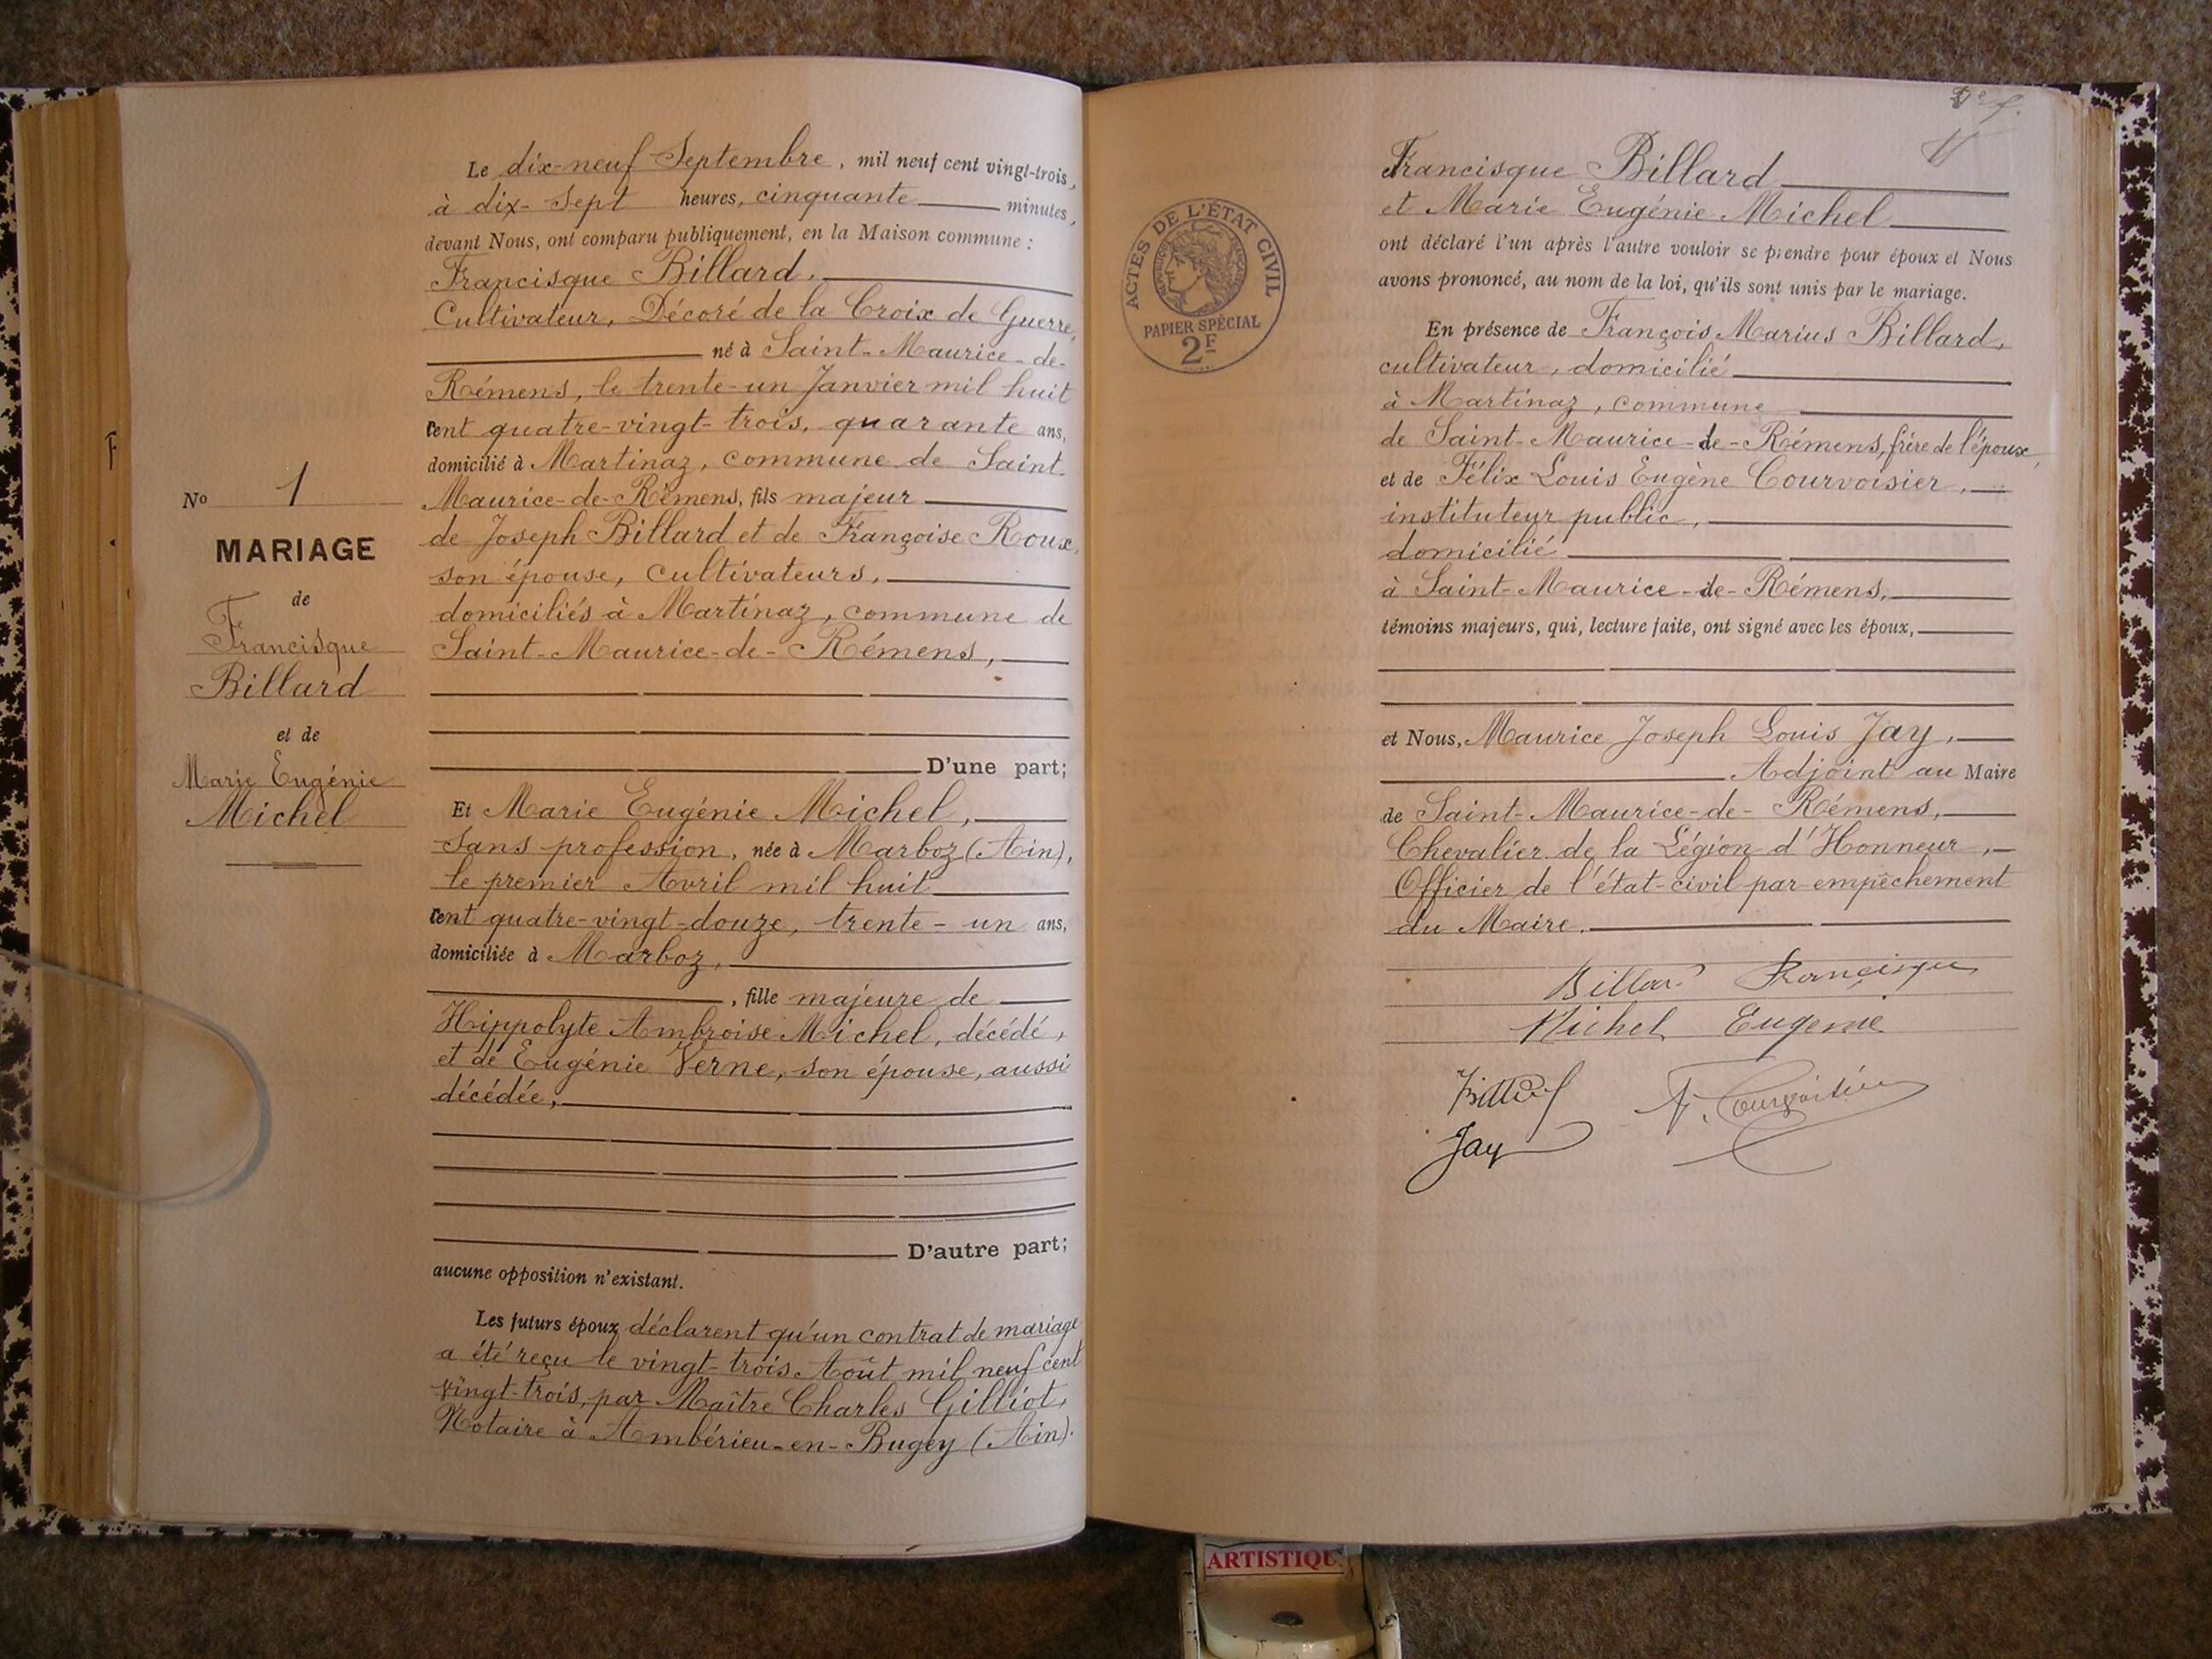 N° 1
MARIAGE
de
Francisque
Billard
et de
Marie Eugénie
Michel
Le dix-neuf Septembre, mil neuf cent vingt-trois,
à dix-sept heures, cinquante minutes,
devant Nous, ont comparu publiquement, en la Maison commune :
Francisque Billard,
Cultivateur, Décoré de la Croix de Guerre,
né à Saint-Maurice-de-
Rémens, le trente-un Janvier mil huit
cent quatre-vingt-trois, quarante ans,
domicilié à Martinaz, commune de Saint-
Maurice-de-Rémens, fils majeur
de Joseph Billard et de Françoise Roux,
son épouse, cultivateurs,
domiciliés à Martinaz, commune de
Saint-Maurice-de-Rémens,
D'une part;
Et Marie Eugénie Michel,
Sans profession, née à Marboz (Ain),
le premier Avril mil huit
cent quatre-vingt-douze, trente-un ans,
domiciliée à Marboz,
, fille majeure de
Hippolyte Ambroise Michel, décédé,
et de Eugénie Verne, son épouse, aussi
décédée,
D'autre part;
aucune opposition n'existant.
Les futurs époux déclarent qu'un contrat de mariage
a été reçu le vingt-trois Août mil neuf cent
vingt-trois, par Maître Charles Gilliot,
Notaire à Ambérieu-en-Bugey (Ain).
ACTES DE L'ÉTAT CIVIL
PAPIER SPÉCIAL
2F
Francisque Billard
et Marie Eugénie Michel
ont déclaré l'un après l'autre vouloir se prendre pour époux et Nous
avons prononcé, au nom de la loi, qu'ils sont unis par le mariage.
En présence de François Marius Billard,
cultivateur, domicilié
à Martinaz, commune
de Saint-Maurice-de-Rémens, frère de l'époux,
et de Félix Louis Eugène Courvoisier,
instituteur public,
domicilié
à Saint-Maurice-de-Rémens,
témoins majeurs, qui, lecture faite, ont signé avec les époux,
et Nous, Maurice Joseph Louis Jay,
Adjoint au Maire
de Saint-Maurice-de-Rémens,
Chevalier de la Légion d'Honneur,
Officier de l'état-civil par empêchement
du Maire.
Billard Francisque
Michel Eugenie
Billard
F. Courvoisier
Jay
ARTISTIQU